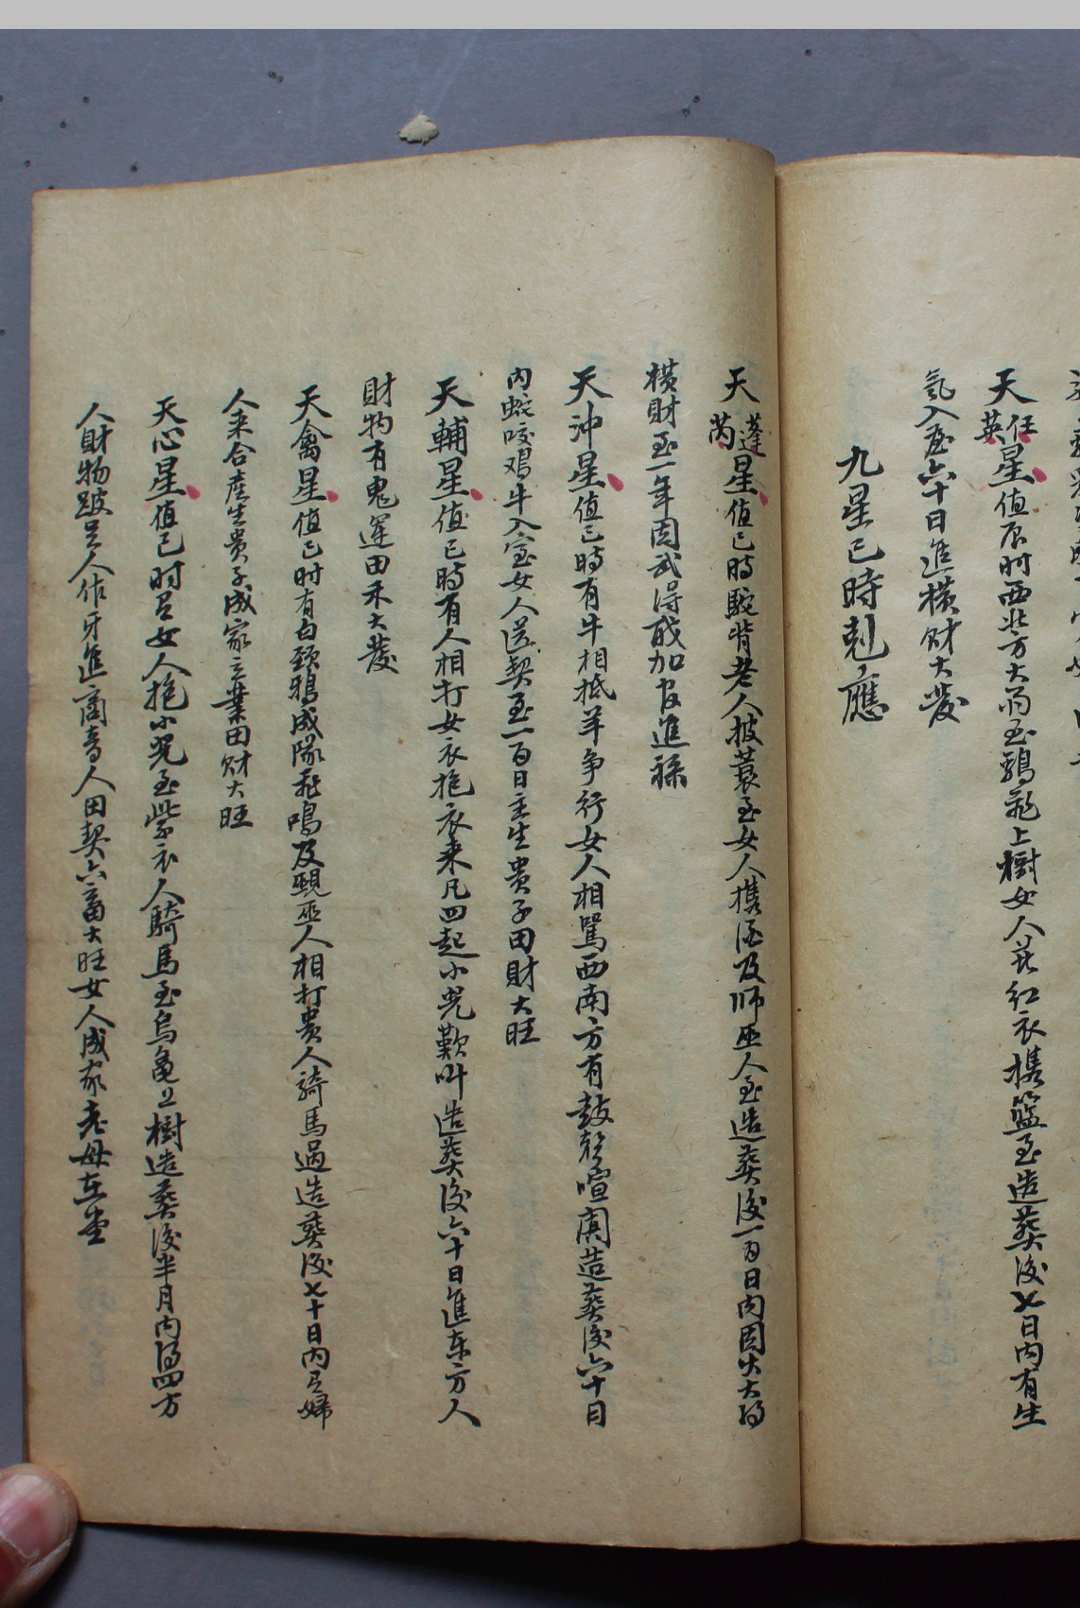 天任英星值辰时西北方大雨至鵶飛上樹女人花红衣携篮至造葬後七日内有生
氣入屋六十日進橫财大發
九星巳時剋應
天蓬芮星值巳時駝背老人披蓑至女人携酒及师巫人至造葬後一百日内因火大得
橫財至一年因武得職加官進祿
天沖星值巳時有牛相抵羊争行女人相駡西南方有鼓聲喧闐造葬後六十日
内蛇咬鷄牛入室女人送契至一百日主生贵子田財大旺
天輔星值巳時有人相打女衣抱衣来凡四起小兒歎叫造葬後六十日進东方人
財物有鬼運田禾大發
天禽星值巳时有白頸鴉成隊飛鳴及覡巫人相打贵人骑馬過造葬後七十日内有婦
人来合產生贵子成家立業田财大旺
天心星值巳时有女人抱小兒至紫衣人騎馬至烏龜上樹造葬後半月内得四方
人財物跛足人作牙進商音人田契六畜大旺女人成家老母在堂